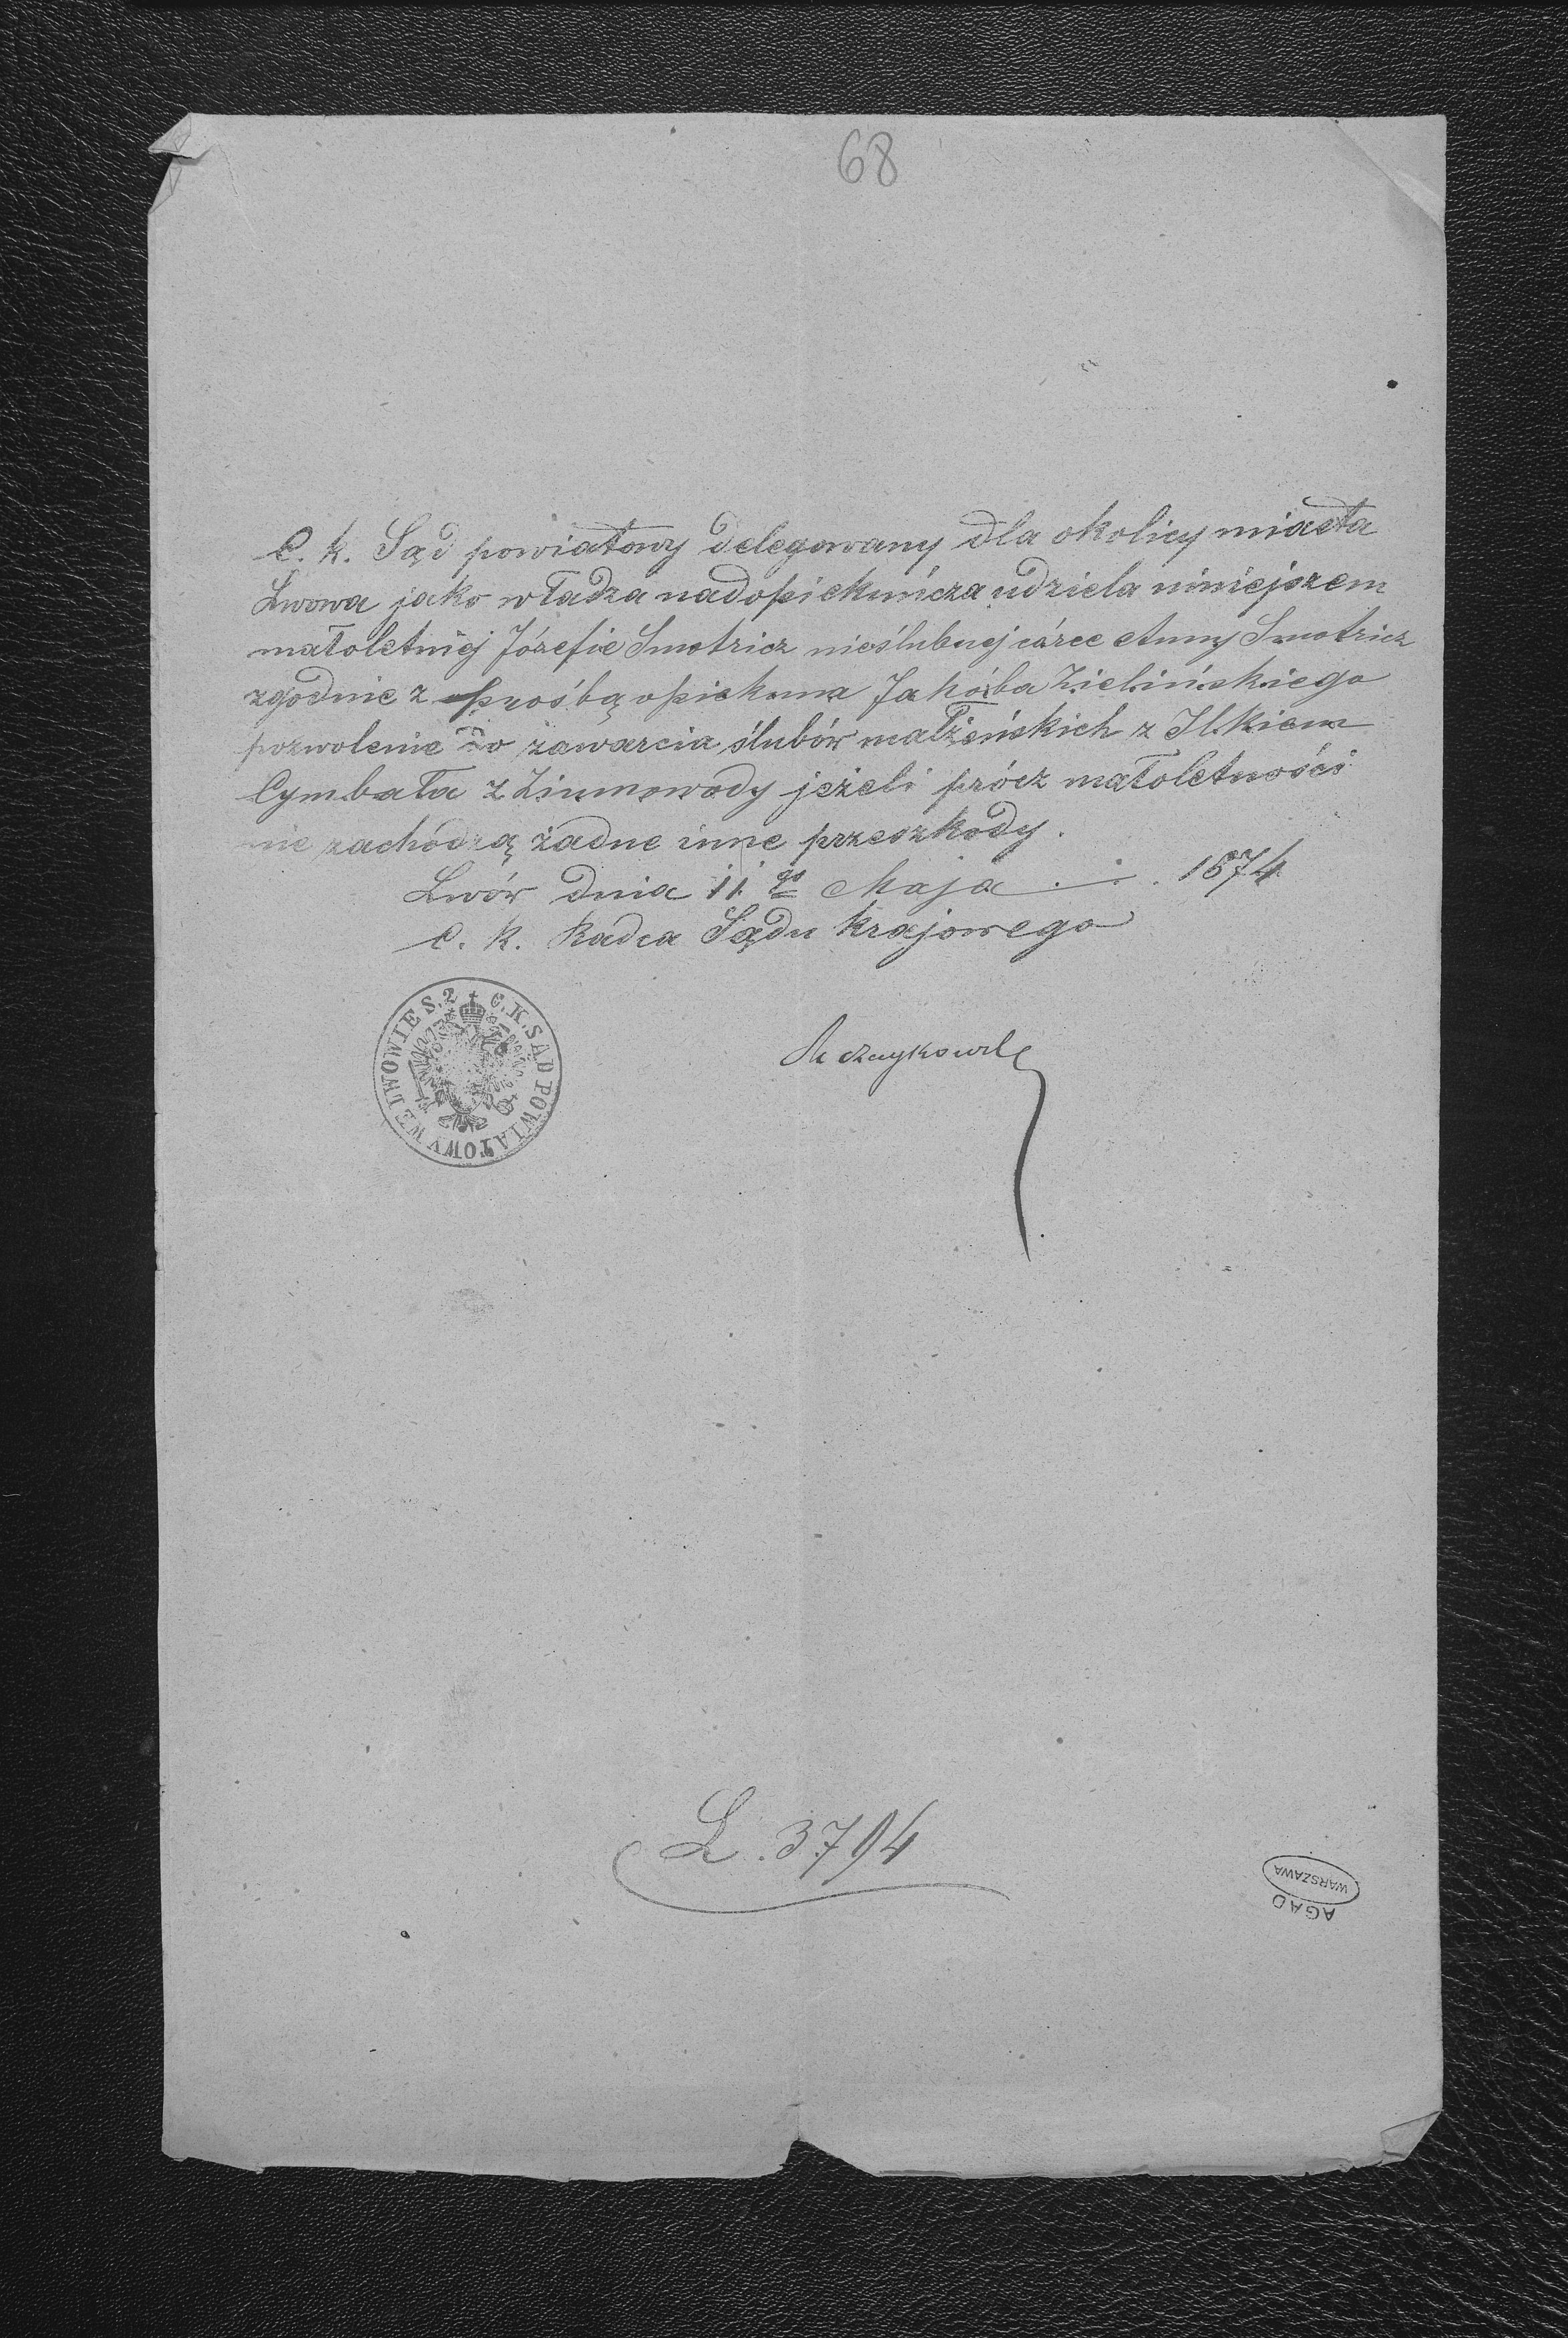 68
C. k. Sąd powiatowy delegowany dla okolicy miasta
Lwowa jako władza nadopiekuńcza udziela niniejszem
małoletniej Józefie Smotricz nieślubnej córce Anny Smotricz
zgodnie z prośbą opiekuna Jakóba Zielińskiego
pozwolenie do zawarcia ślubów małżeńskich z Ilkiem
Cymbała z Zimnowody jeżeli prócz małoletności
nie zachodzą żadne inne przeszkody.
Lwów dnia 11 go Maja . . . 1874
C. k. Radca Sądu krajowego
C. K. SĄD POWIATOWY WE LWOWIE S. 2
L. 3794
WARSZAWA
AGAD